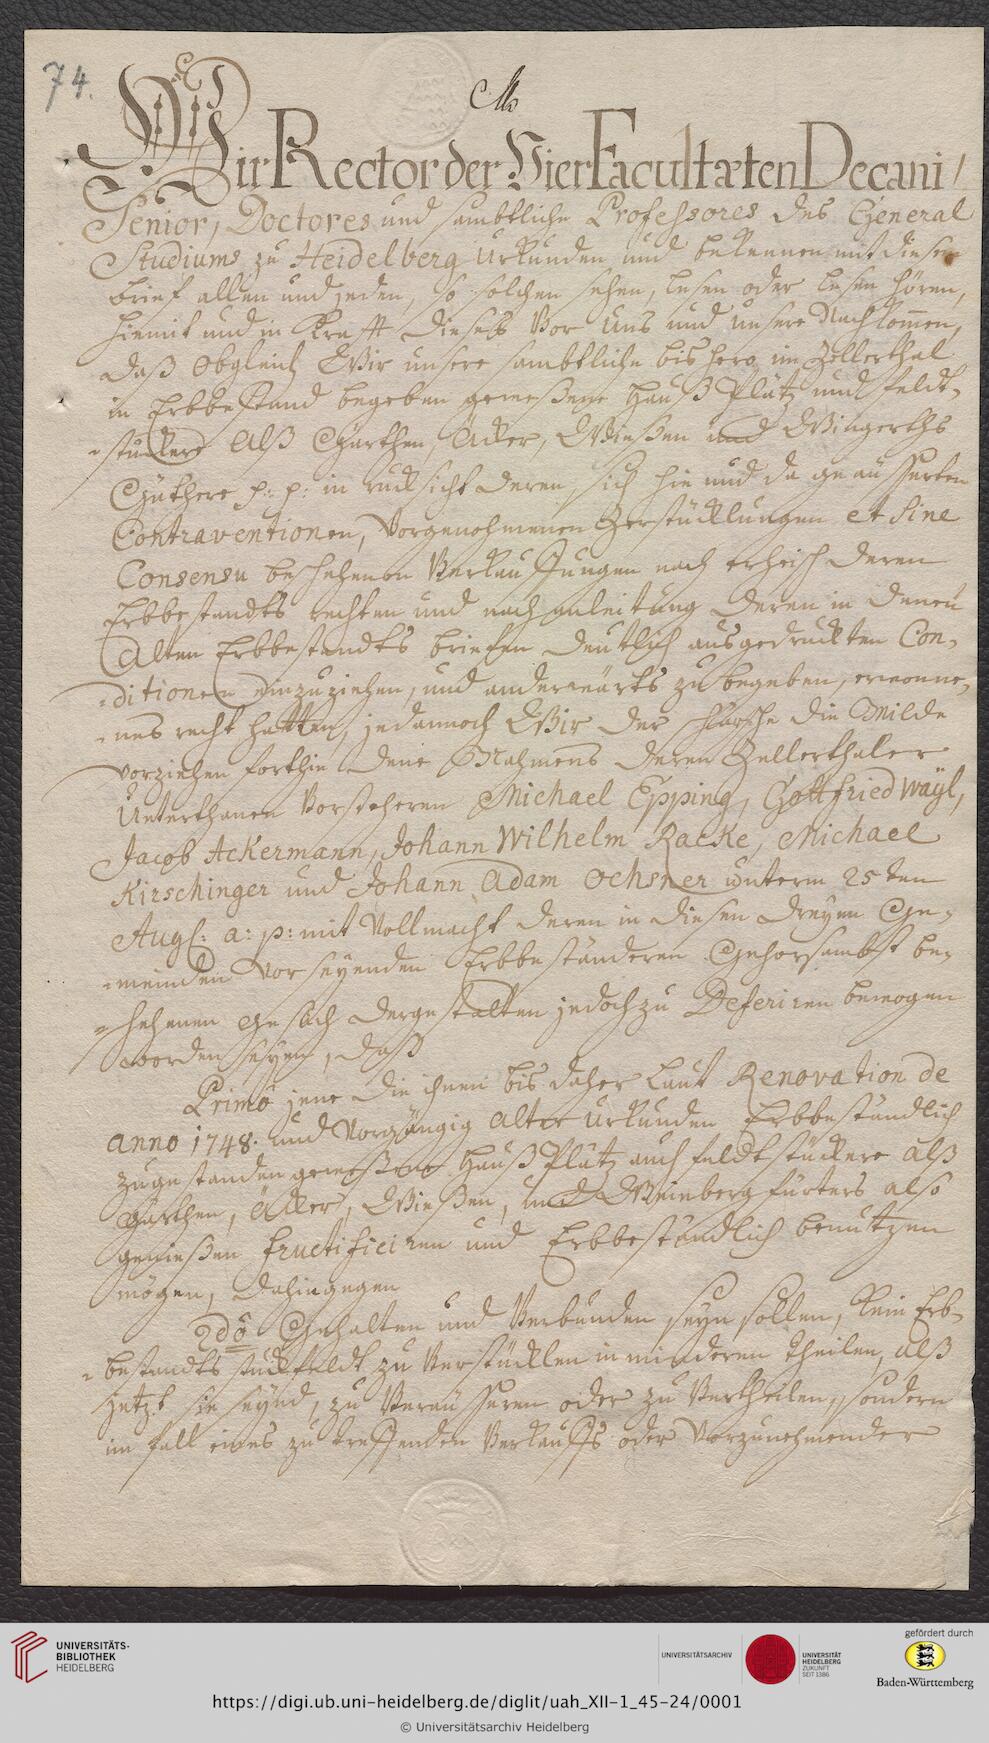 74.
Wir Rector der Vier Facultæten Decani,
Senior, Doctores und sambtliche Professores des General
Studiums zu Heidelberg Urkunden und bekennen mit diesem
brief allen und jeden, so solchen sehen, lesen oder lesen hören,
hiemit und in Krafft dieses Vor Uns und unsere Nachkommen,
daß Obgleich Wir unsere sambtliche bishero im Zellerthal
in Erbbestand begeben geweßene Hauß Plätz und feldt-
stücker Alß Gärthen, Äcker, Wießen und Wingerths
Güthere p: p: in rucksicht deren, sich hie und da geäusserten
Contraventionen, Vorgenohmenen Zerstücklungen et sine
Consensu beschehenen Verkauffungen nach erheisch deren
Erbbestandts rechten und nach anleitung deren in denen
Alten Erbbestandts briefen deutlich ausgedruckten Con-
ditionen einzuziehen, und anderwärts zu begeben, erwonne-
nes recht hatten, jedannoch Wir der schärfe die Milde
vorziehen forthin dene Nahmens deren Zellerthaler
Unterthanen Vorsteheren Michael Epping, Gottfried Wäyl,
Jacob Ackermann, Johann Wilhelm Racke, Michael
Kirschinger und Johann Adam Ochsner unterm 25ten
Aug: a: p: mit Vollmacht deren in diesen dreyen Ge-
meinden Vor seyenden Erbbeständeren Gehorsambst be-
schehenen Gesuch dergestalten jedoch zu Deferiren bewogen
worden seyen, daß
Primo jene die ihnen bis daher Laut Renovation de
anno 1748. und Vorgängig Alter Urkunden Erbbeständlich
zugestanden geweßene Hauß Plätz auch feldtstückere alß
Gärthen, Äcker, Wießen, und Weinberg fürters also
genießen fructificiren und Erbbeständlich benutzen
mögen, dahingegen
2do Gehalten und Verbunden seyn sollen, kein Erb-
bestandts stück feldt zu Verstücklen in minderen theilen, alß
jetzt sie seynd, zu Veräusseren oder zu Vertheilen, sondern
im fall eines zu treffenden Verkauffs oder Vorzunehmender
UNIVERSITÄTS-
BIBLIOTHEK
HEIDELBERG
UNIVERSITÄTSARCHIV
UNIVERSITÄT
HEIDELBERG
ZUKUNFT
SEIT 1386
gefördert durch
Baden-Württemberg
https://digi.ub.uni-heidelberg.de/diglit/uah_XII-1_45-24/0001
© Universitätsarchiv Heidelberg